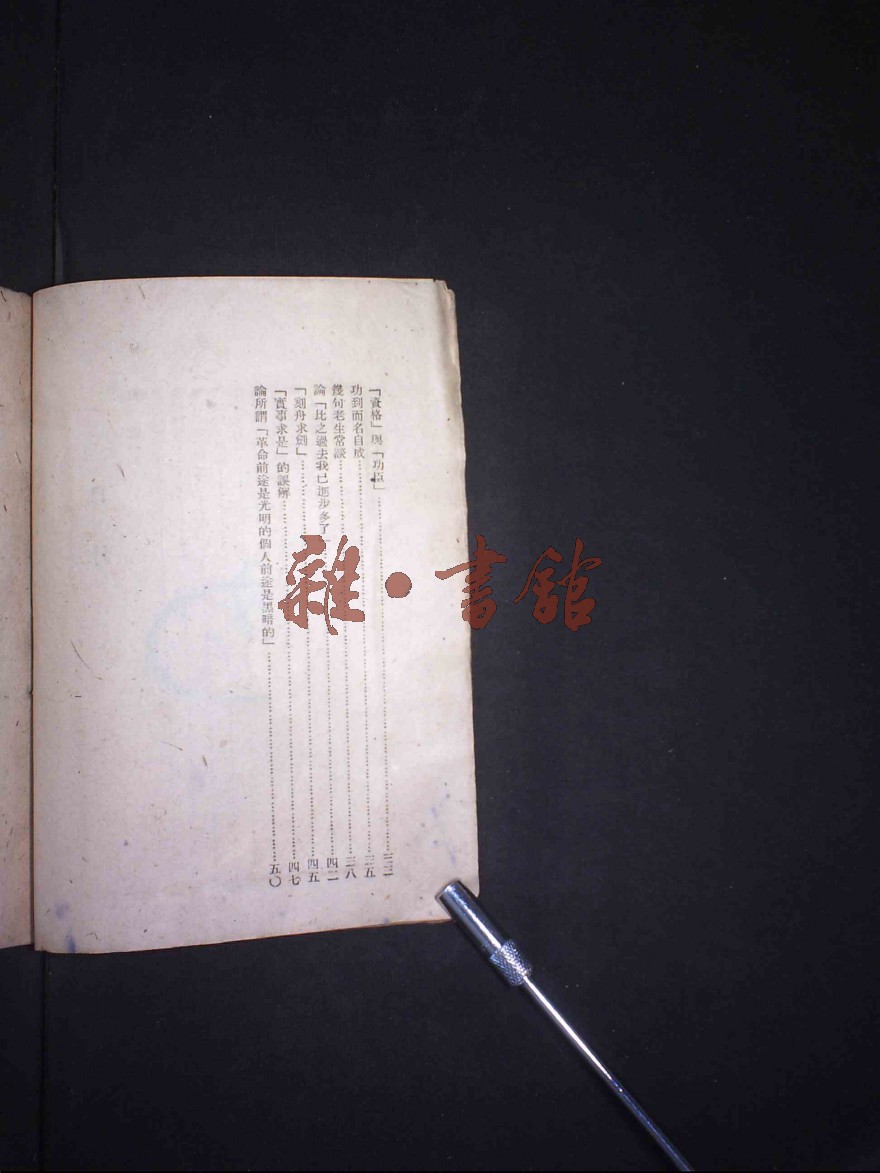 「資格」與「功臣」……三二
功到而名自成……三五
幾句老生常談……三八
論「比之過去我已進步多了」……四二
「刻舟求劍」……四五
「實事求是」的誤解……四七
論所謂「革命前途是光明的個人前途是黑暗的」……五〇
雜·書舘